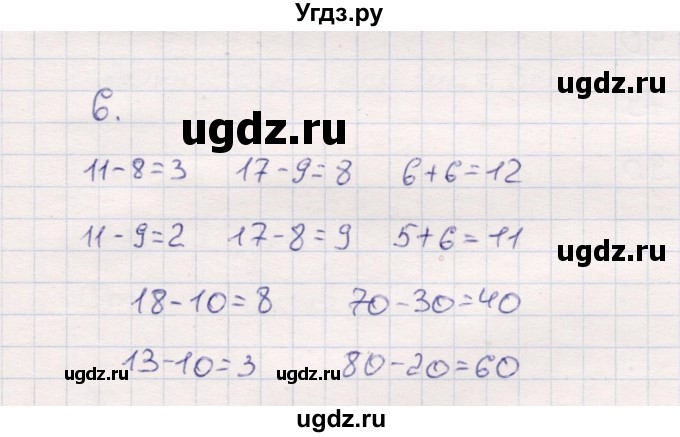 Угдз.ру
ugdz.ru
6.
ugdz.ru
11-8=3 17-9=8 6+6=12
11-9=2 17-8=9 5+6=11
ugdz.ru
18-10=8 70-30=40
13-10=3 80-20=60
ugdz.ru ugdz.ru
ugdz.ru